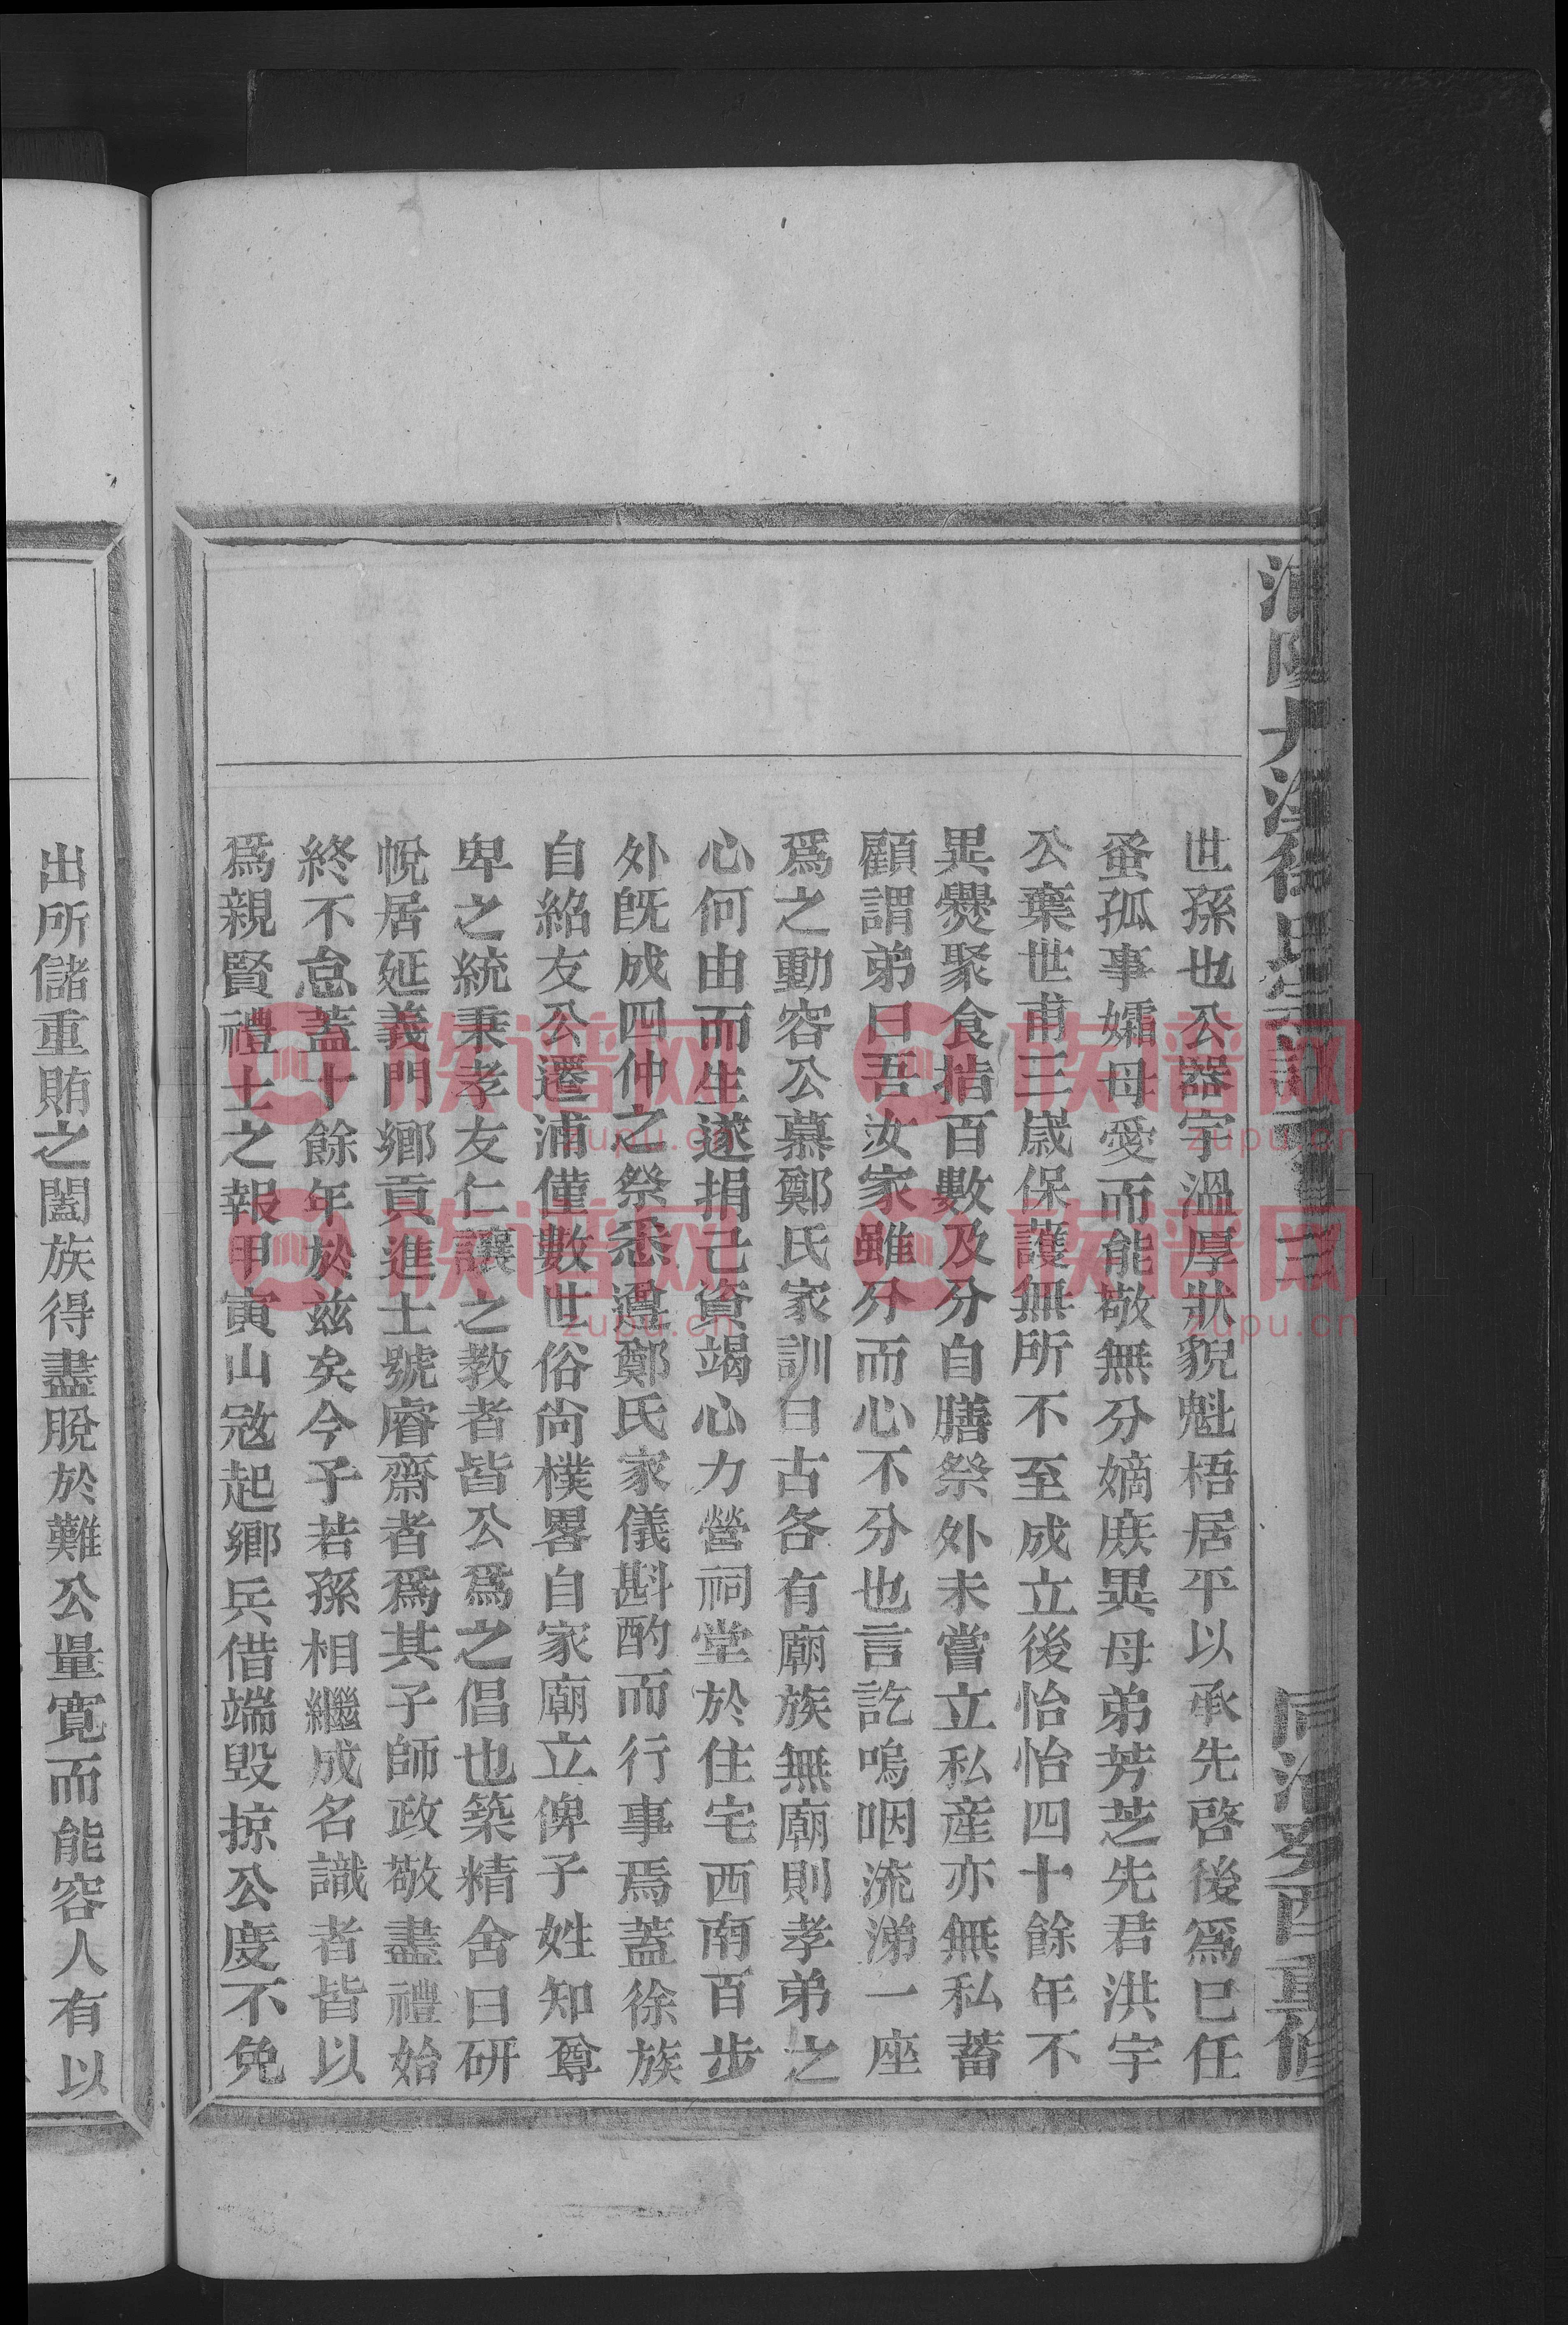 浦陽大溪徐氏宗譜
同治癸酉重修
世孫也公器宇溫厚狀貌魁梧居平以承先啓後爲已任
蚤孤事孀母愛而能敬無分嫡庶異母弟芳芝先君洪宇
公棄世甫三歲保護無所不至成立後怡怡四十餘年不
異爨聚食指百數及分自膳祭外未嘗立私産亦無私蓄
顧謂弟曰吾汝家雖分而心不分也言訖嗚咽流涕一座
爲之動容公慕鄭氏家訓曰古各有廟族無廟則孝弟之
心何由而生遂捐己資竭心力營祠堂於住宅西南百步
外旣成四仲之祭悉遵鄭氏家儀斟酌而行事焉蓋徐族
自紹友公遷浦僅數世俗尙樸畧自家廟立俾子姓知尊
卑之統秉孝友仁讓之教者皆公爲之倡也築精舍曰研
帨居延義門鄉貢進士號睿齋者爲其子師政敬盡禮始
終不怠蓋十餘年於兹矣今子若孫相繼成名識者皆以
爲親賢禮士之報甲寅山寇起鄉兵借端毀掠公度不免
出所儲重賄之闔族得盡脫於難公量寬而能容人有以
族谱网
zupu.cn
族谱网
zupu.cn
族谱网
zupu.cn
族谱网
zupu.cn